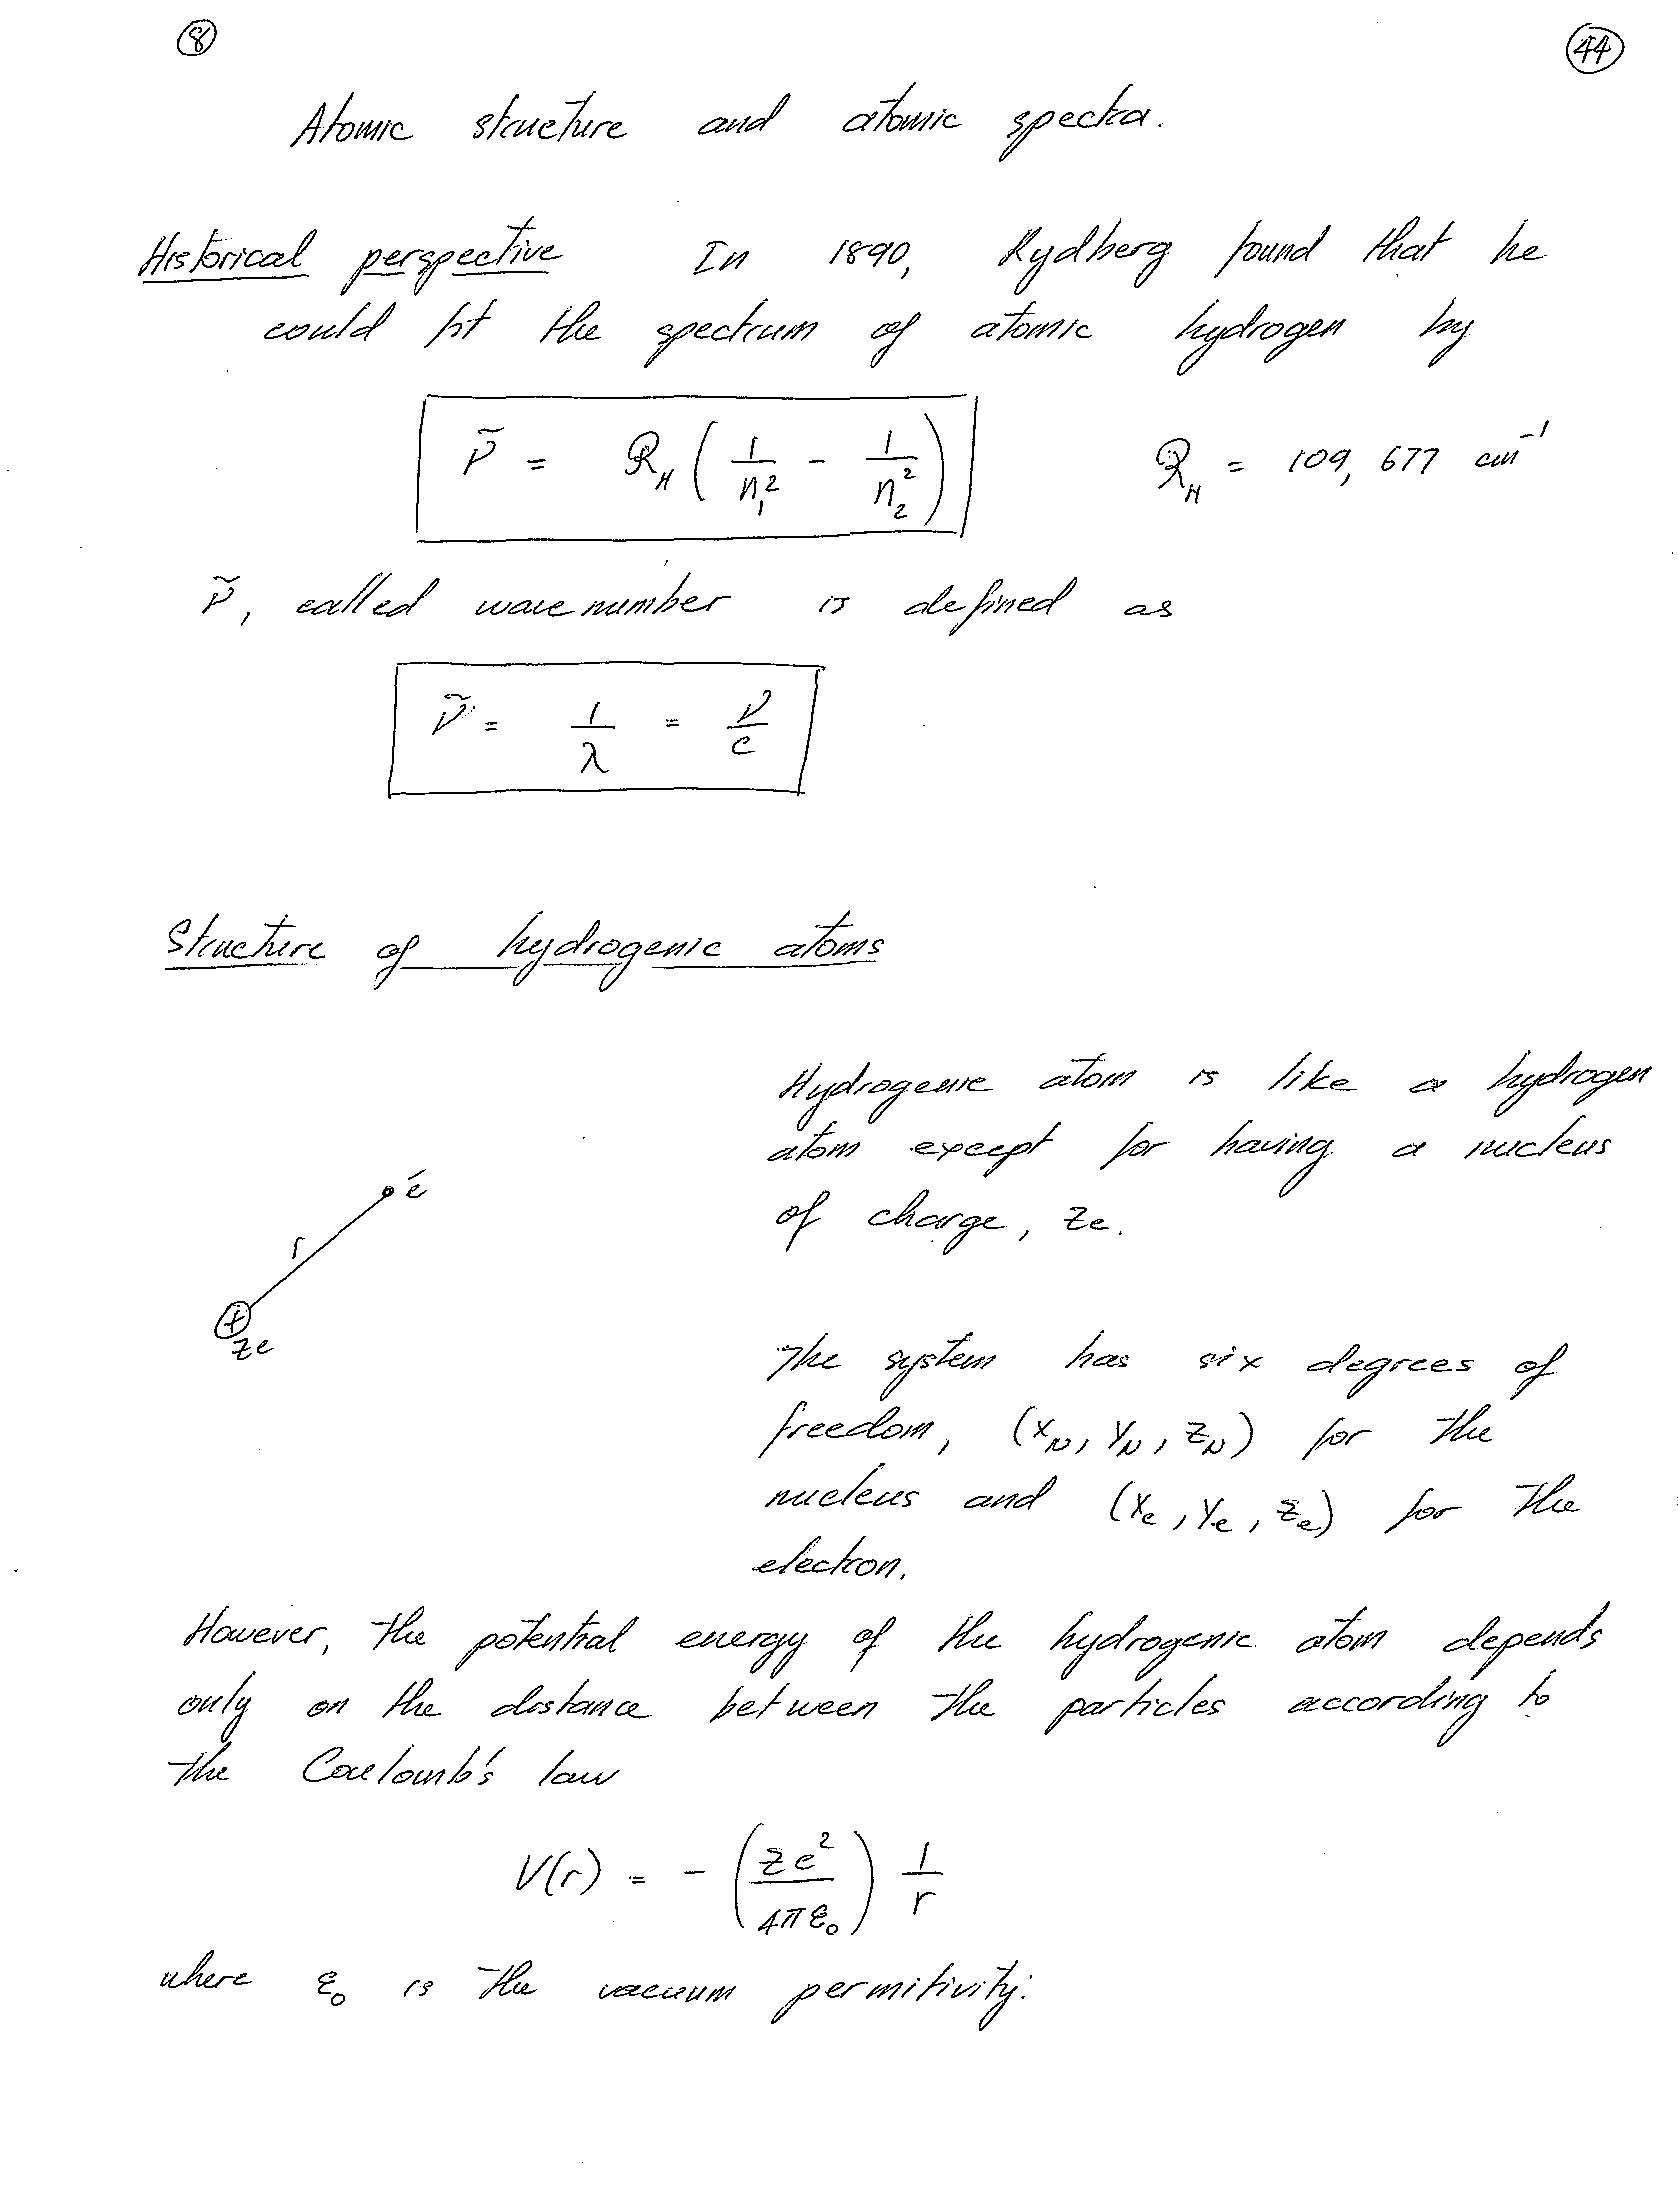 8 44
Atomic structure and atomic spectra.
Historical perspective In 1890, Rydberg found that he
could fit the spectrum of atomic hydrogen by
ν̃ = R_H ( 1/n₁² - 1/n₂² ) R_H = 109,677 cm⁻¹
ν̃, called wavenumber is defined as
ν̃ = 1/λ = ν/c
Structure of hydrogenic atoms
Hydrogenic atom is like a hydrogen
atom except for having a nucleus
of charge, Ze.
e⁻
r
+
Ze
The system has six degrees of
freedom, (x_N, y_N, z_N) for the
nucleus and (x_e, y_e, z_e) for the
electron.
However, the potential energy of the hydrogenic atom depends
only on the distance between the particles according to
the Coulomb's law
V(r) = - ( Ze² / 4πε₀ ) 1/r
where ε₀ is the vacuum permitivity.